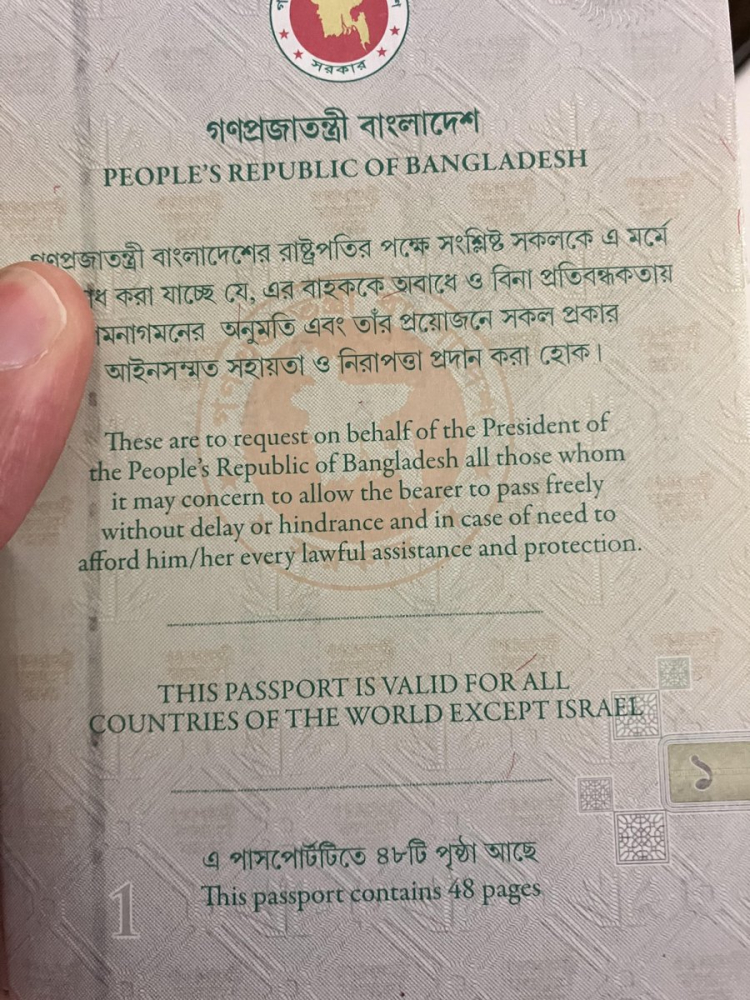 সরকার
গণপ্রজাতন্ত্রী বাংলাদেশ
PEOPLE'S REPUBLIC OF BANGLADESH
গণপ্রজাতন্ত্রী বাংলাদেশের রাষ্ট্রপতির পক্ষে সংশ্লিষ্ট সকলকে এ মর্মে
করা যাচ্ছে যে, এর বাহককে অবাধে ও বিনা প্রতিবন্ধকতায়
অনুমতি এবং তাঁর প্রয়োজনে সকল প্রকার
আইনসম্মত সহায়তা ও নিরাপত্তা প্রদান করা হোক।
These are to request on behalf of the President of
the People's Republic of Bangladesh all those whom
it may concern to allow the bearer to pass freely
without delay or hindrance and in case of need to
afford him/her every lawful assistance and protection.
THIS PASSPORT IS VALID FOR ALL
COUNTRIES OF THE WORLD EXCEPT ISRAEL
১
এ পাসপোর্টটিতে ৪৮টি পৃষ্ঠা আছে
This passport contains 48 pages
1